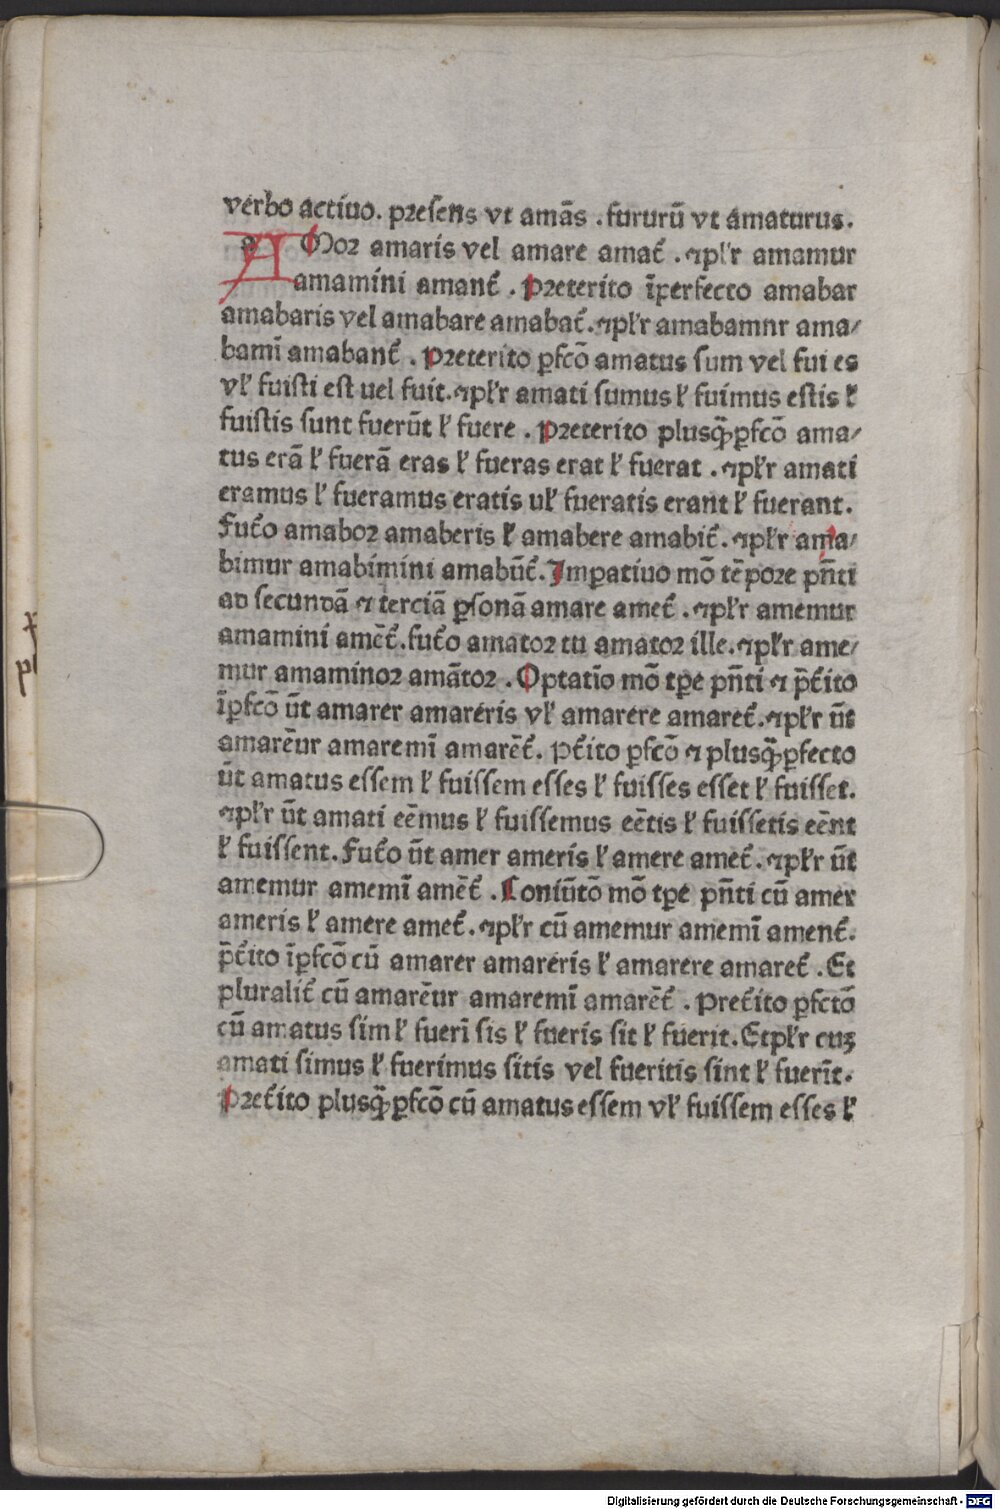 verbo actiuo. presens vt amās . fururū vt amaturus.
AMor amaris vel amare amat᷑ . ⁊pl'r amamur
amamini amant᷑ . Preterito īperfecto amabar
amabaris vel amabare amabat᷑. ⁊pl'r amabamnr ama/
bami᷑ amabant᷑ . Preterito ꝑfcō amatus sum vel fui es
vl' fuisti est uel fuit. ⁊pl'r amati sumus ł fuimus estis ł
fuistis sunt fuerūt ł fuere . Preterito plusq̄ꝑfcō ama/
tus erā ł fuerā eras ł fueras erat ł fuerat . ⁊pl'r amati
eramus ł fueramus eratis ul' fueratis erant ł fuerant.
Fut᷑o amabor amaberis ł amabere amabit᷑. ⁊pl'r ama/
bimur amabimini amabūt᷑. Imꝑatiuo mō tēpore pn̄ti
ad secundā ⁊ terciā ꝑsonā amare amet᷑ . ⁊pl'r amemur
amamini amēt᷑. fut᷑o amator tu amator ille. ⁊pl'r ame/
mur amaminor amātor . Optatīo mō tꝑe pn̄ti ⁊ p̄t᷑ito
īꝑfcō ūt amarer amareris vl' amarere amaret᷑. ⁊pl'r ūt
amarēur amaremī amarēt᷑. Pt᷑ito ꝑfcō ⁊ plusq̄ꝑfecto
ūt amatus essem ł fuissem esses ł fuisses esset ł fuisset.
⁊pl'r ūt amati eēmus ł fuissemus eētis ł fuissetis eēnt
ł fuissent. Fut᷑o ūt amer ameris ł amere amet᷑. ⁊pl'r ūt
amemur amemī amēt᷑ . Coniūtō mō tꝑe pn̄ti cū amer
ameris ł amere amet᷑. ⁊pl'r cū amemur amemī ament᷑.
p̄t᷑ito īꝑfcō cū amarer amareris ł amarere amaret᷑ . Et
pluralit᷑ cū amarēur amaremī amarēt᷑ . Pret᷑ito ꝑfctō
cū amatus sim ł fuerī sis ł fueris sit ł fuerit. Etpl'r cuꝫ
amati simus ł fuerimus sitis vel fueritis sint ł fuerīt.
Pret᷑ito plusq̄ꝑfcō cū amatus essem vl' fuissem esses ł
Digitalisierung gefördert durch die Deutsche Forschungsgemeinschaft - DFG